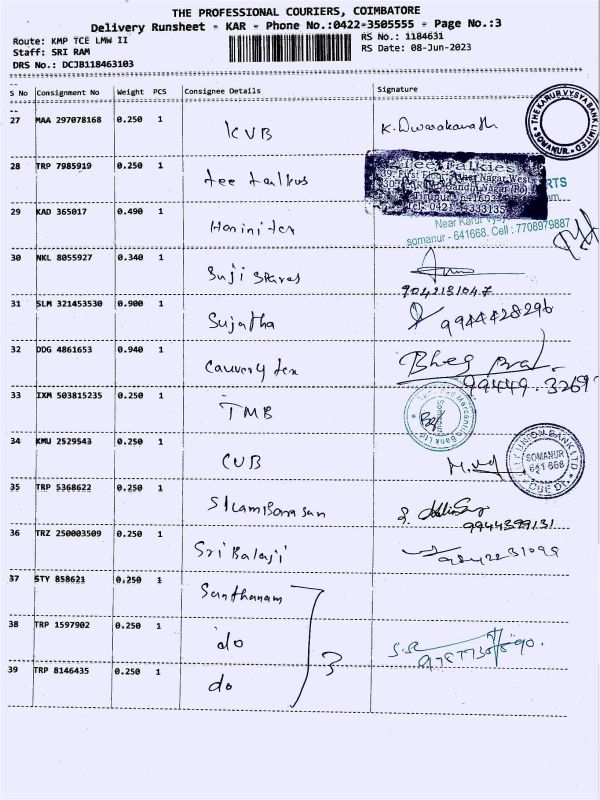 THE PROFESSIONAL COURIERS, COIMBATORE
Delivery Runsheet - KAR - Phone No.:0422-3505555 - Page No.:3
Route: KMP TCE LMW II
RS No.: 1184631
Staff: SRI RAM
RS Date: 08-Jun-2023
DRS No.: DCJB118463103
S No Consignment No Weight PCS Consignee Details Signature
27 MAA 297078168 0.250 1 KVB K. Dwarakanath
THE KARUR VYSYA BANK LIMITED
SOMANUR.
28 TRP 7985919 0.250 1 tee talkus
Tee Talkies
29 KAD 365017 0.490 1 Harini tex
Near Karur Vysya
somanur - 641668. Cell : 7708979887
30 NKL 8055927 0.340 1 Suji Stores
9042131047
31 SLM 321453530 0.900 1 Sujatha 9944428296
32 DDG 4861653 0.940 1 Cauvery tex
99449
33 IXM 503815235 0.250 1 TMB
Mercantile Bank Ltd
Somanur
34 KMU 2529543 0.250 1 CUB
CITY UNION BANK LTD
SOMANUR
641 668
35 TRP 5368622 0.250 1
9944399131
36 TRZ 250003509 0.250 1 Sri Balaji
37 STY 858621 0.250 1 Santhanam
38 TRP 1597902 0.250 1 do
3
39 TRP 8146435 0.250 1 do